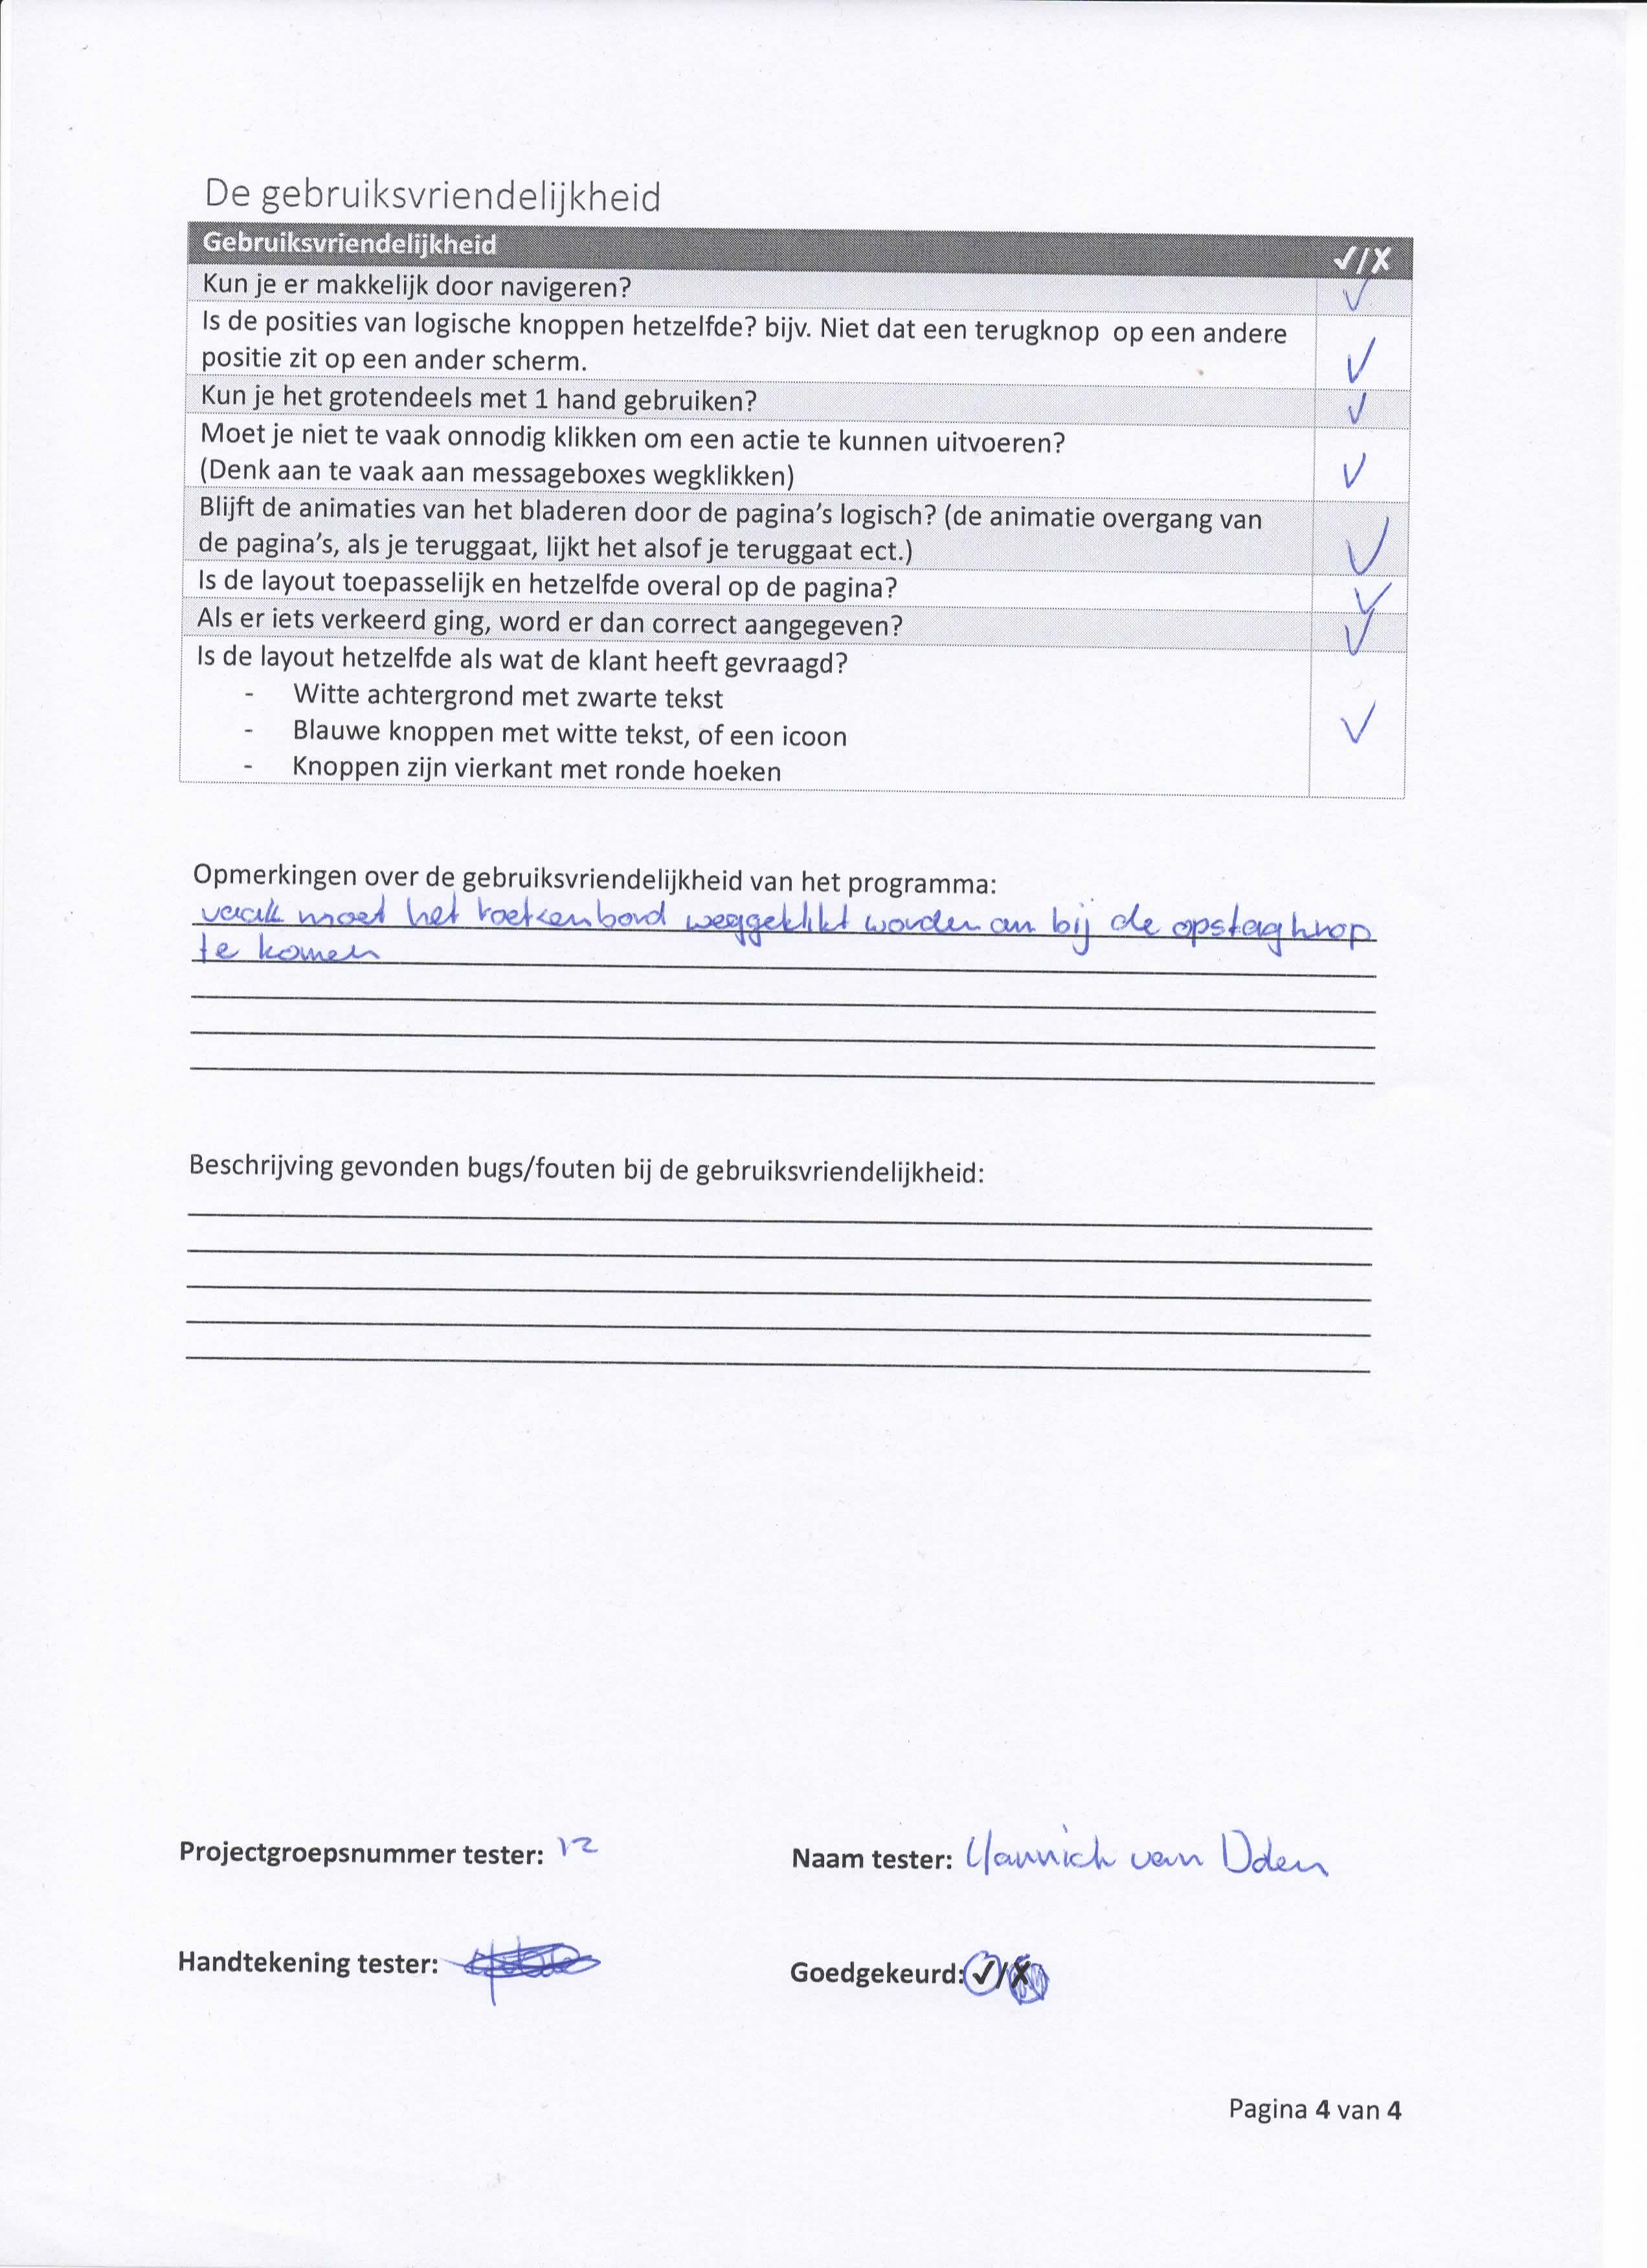 De gebruiksvriendelijkheid
Gebruiksvriendelijkheid ✓/X
Kun je er makkelijk door navigeren? ✓
Is de posities van logische knoppen hetzelfde? bijv. Niet dat een terugknop op een andere
positie zit op een ander scherm. ✓
Kun je het grotendeels met 1 hand gebruiken? ✓
Moet je niet te vaak onnodig klikken om een actie te kunnen uitvoeren?
(Denk aan te vaak aan messageboxes wegklikken) ✓
Blijft de animaties van het bladeren door de pagina's logisch? (de animatie overgang van
de pagina's, als je teruggaat, lijkt het alsof je teruggaat ect.) ✓
Is de layout toepasselijk en hetzelfde overal op de pagina? ✓
Als er iets verkeerd ging, word er dan correct aangegeven? ✓
Is de layout hetzelfde als wat de klant heeft gevraagd?
- Witte achtergrond met zwarte tekst
- Blauwe knoppen met witte tekst, of een icoon ✓
- Knoppen zijn vierkant met ronde hoeken
Opmerkingen over de gebruiksvriendelijkheid van het programma:
vaak moet het toetsenbord weggeklikt worden om bij de opslagknop
te komen
Beschrijving gevonden bugs/fouten bij de gebruiksvriendelijkheid:
Projectgroepsnummer tester: 12
Naam tester: Yannick van Uden
Handtekening tester:
Goedgekeurd: ✓/X
Pagina 4 van 4